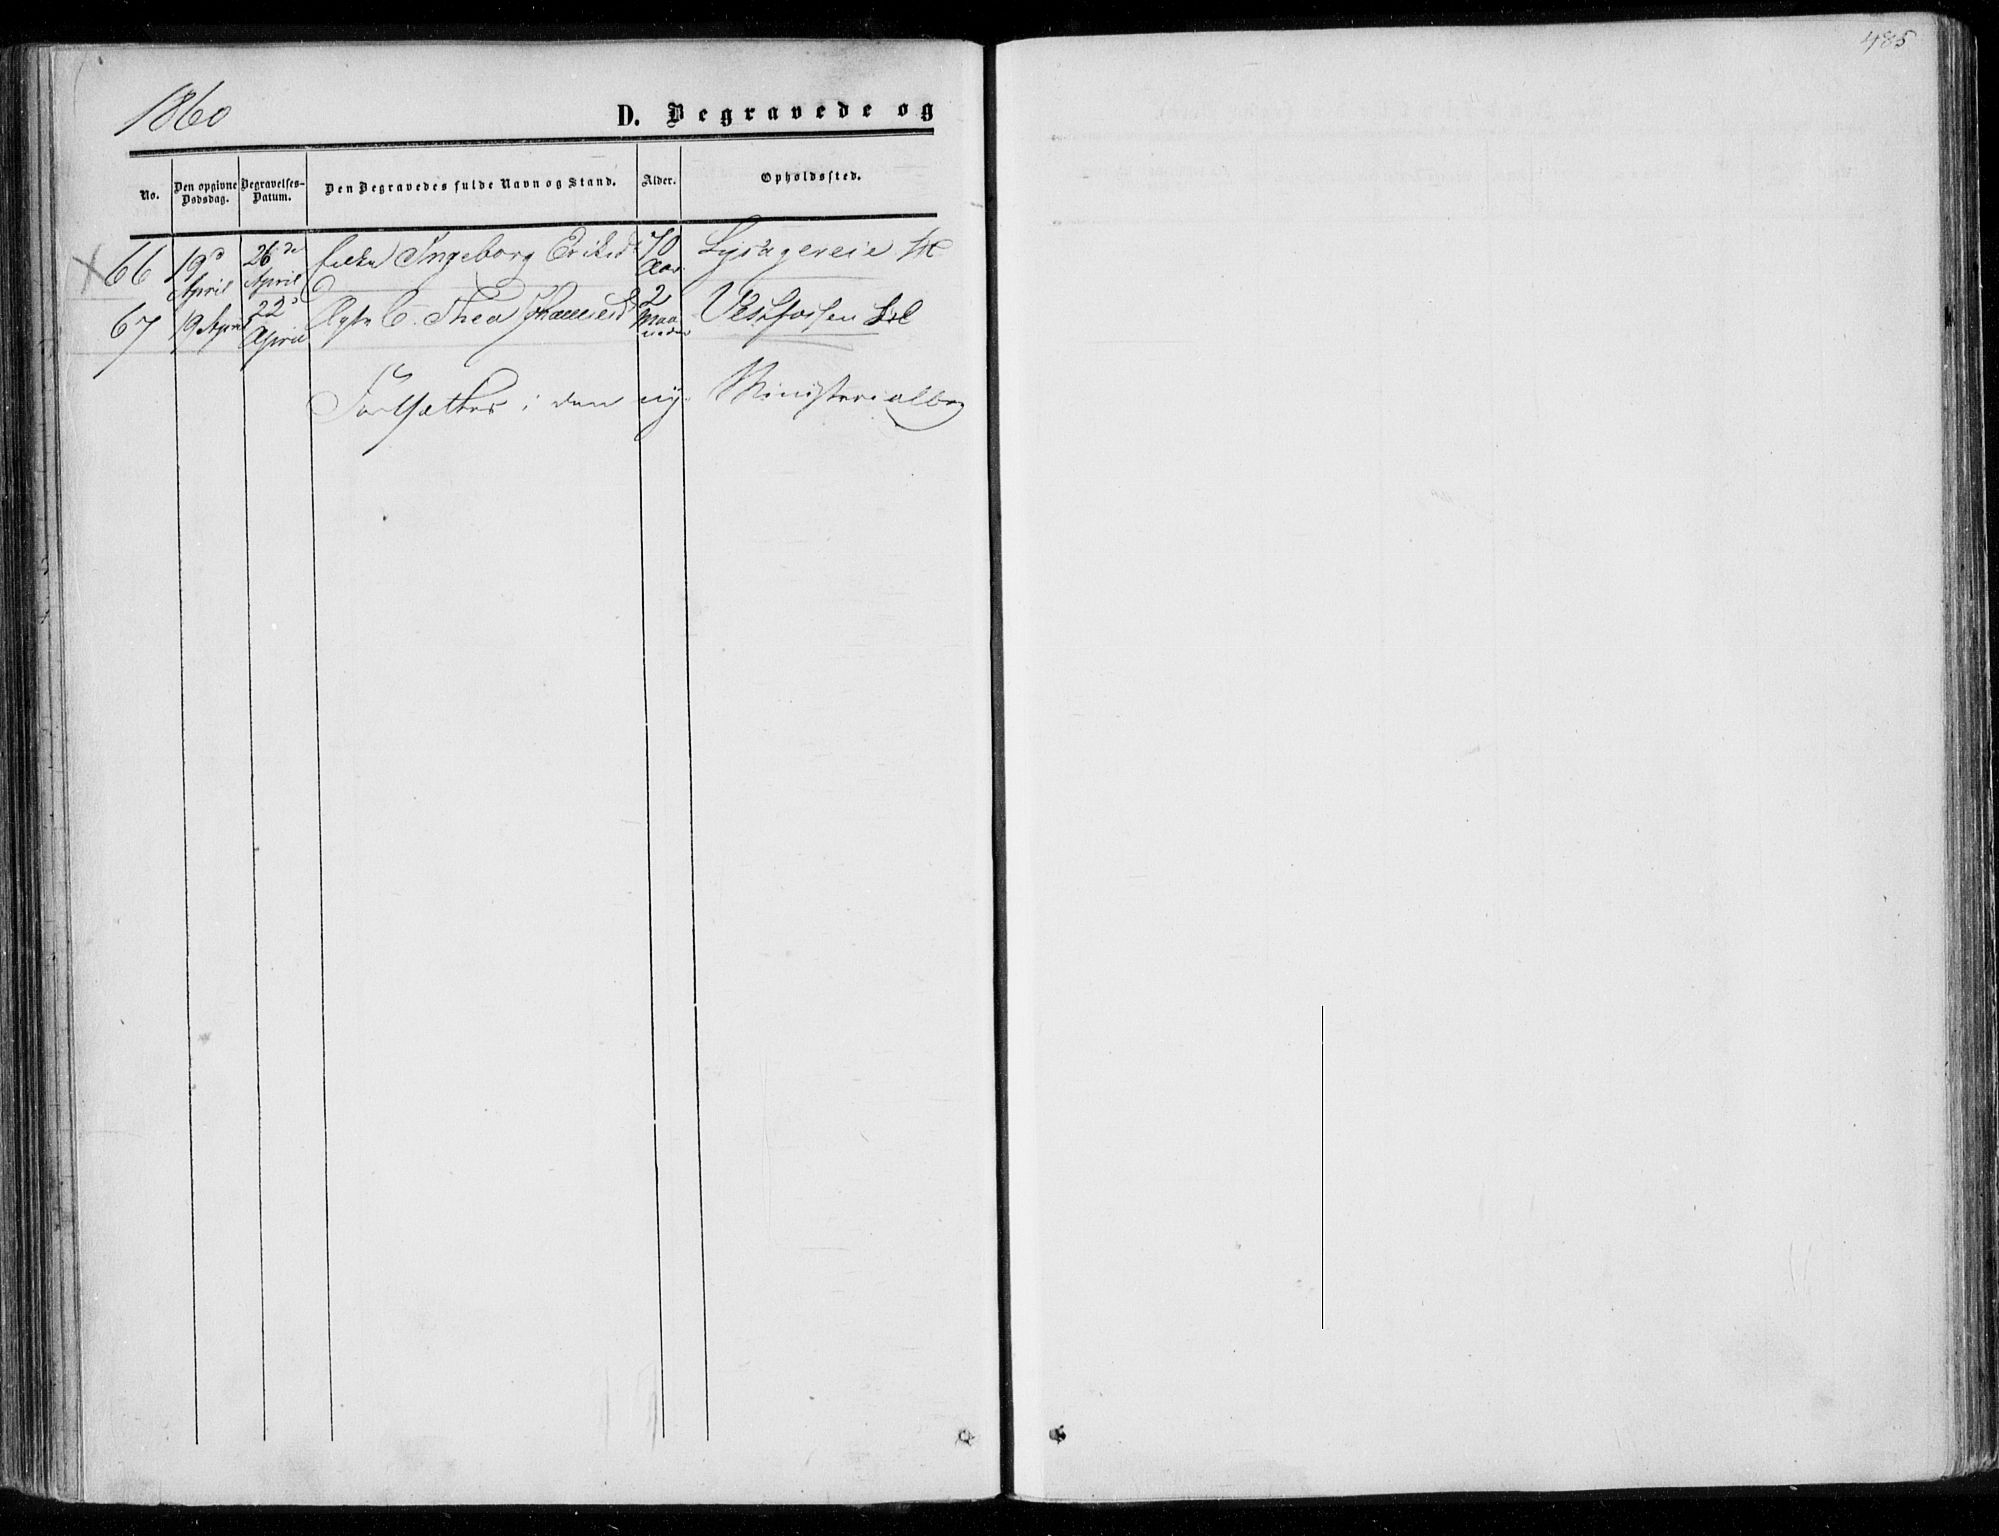 485
1860
D. Begravede og
No.
Den opgivne Dødsdag.
Begravelses-Datum.
Den Begravedes fulde Navn og Stand.
Alder.
Opholdssted.
66 19d April 26de April Enke Ingeborg Eriksd 70 Aar
67 19 April 22d April Ægte B. Thea 2 Maaneder Vestfossen
Fortsættes i den ny Ministerialbog